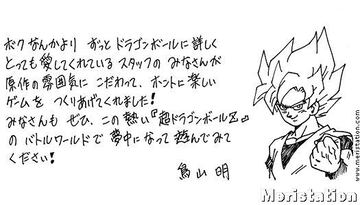 ボクなんかより ずっとドラゴンボールに詳しく
とっても愛してくれているスタッフのみなさんが
原作の雰囲気に こだわって、ホントに楽しい
ゲームを つくりあげてくれました!
みなさんも ぜひ、この熱い『超ドラゴンボールZ』
のバトルワールドで 夢中になって 遊んでみて
ください!
鳥山 明
www.meristation.com
Meristation